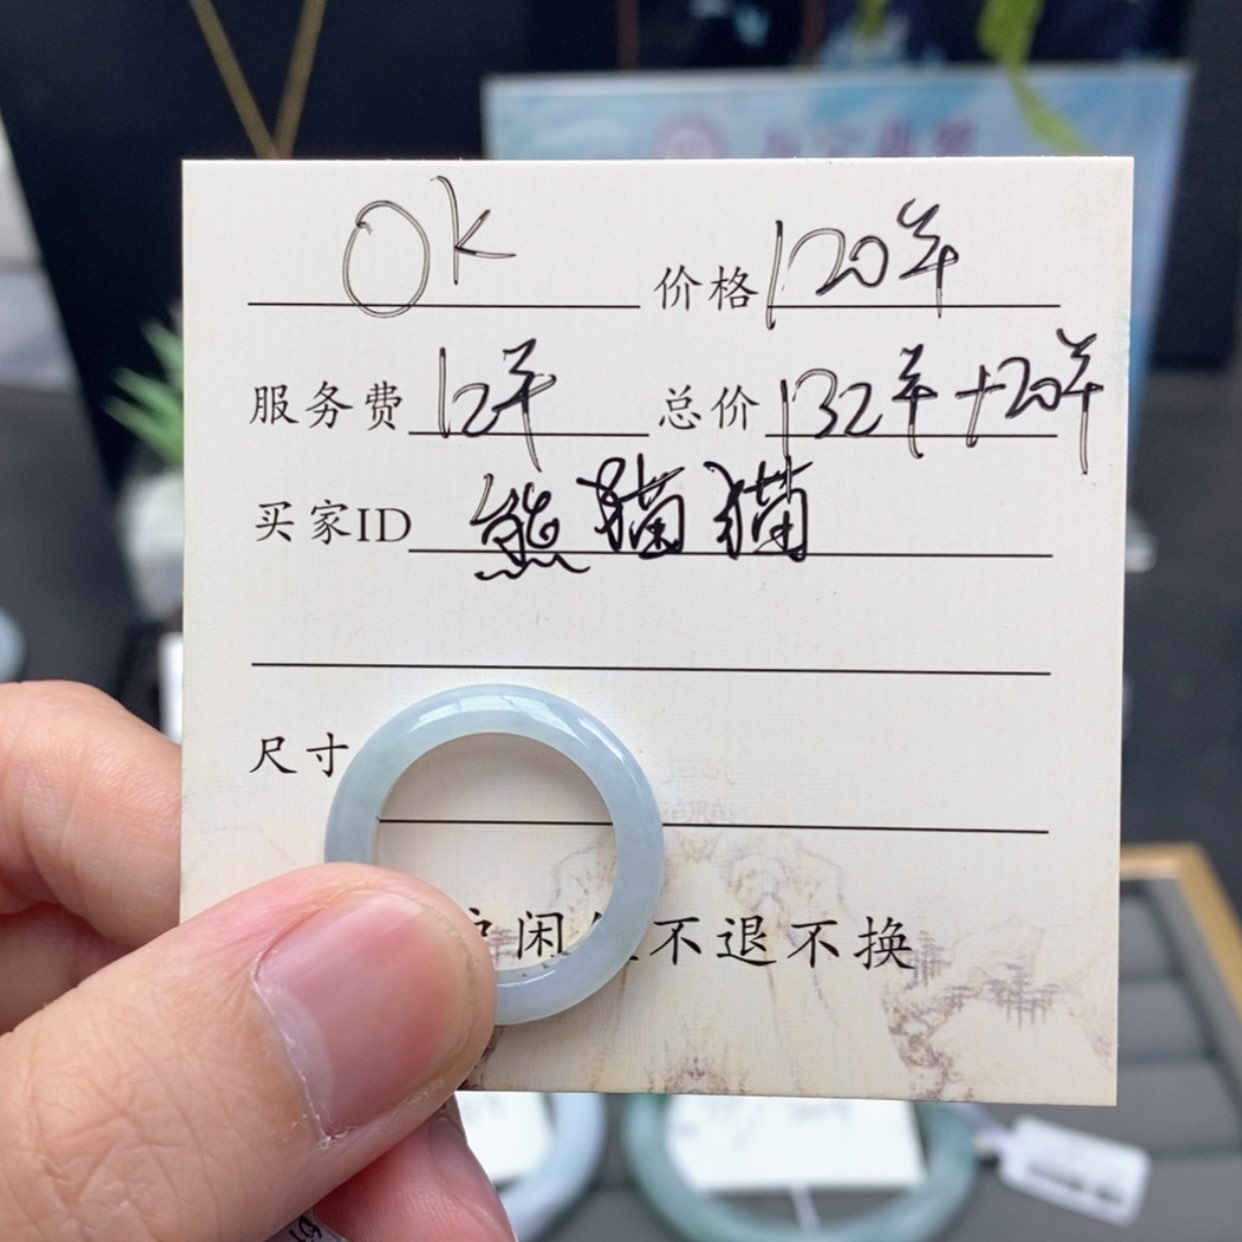 OK 价格 120年
服务费 12年 总价 132年+20年
买家ID 熊猫猫
尺寸
闲 不退不换